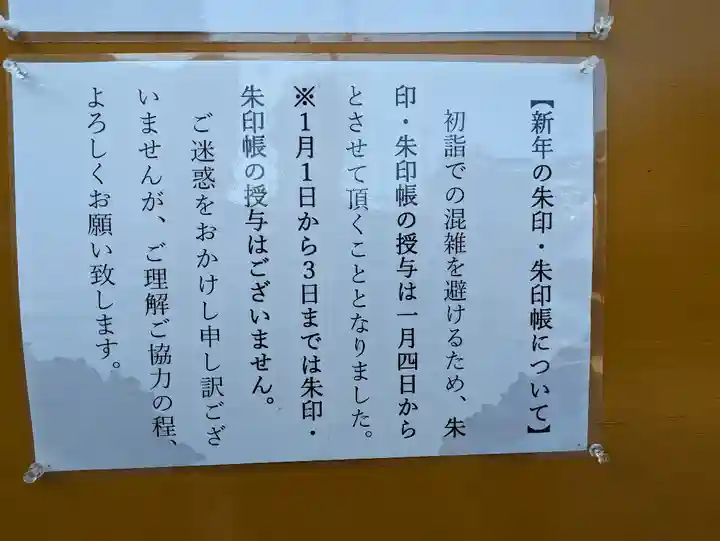 【新年の朱印・朱印帳について】
初詣での混雑を避けるため、朱
印・朱印帳の授与は一月四日から
とさせて頂くこととなりました。
※１月１日から３日までは朱印・
朱印帳の授与はございません。
ご迷惑をおかけし申し訳ござ
いませんが、ご理解ご協力の程、
よろしくお願い致します。